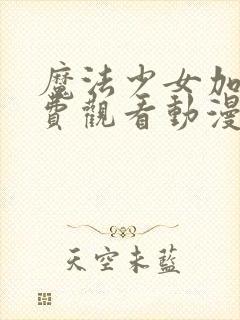 魔法少女加
費觀看動漫
天空未藍